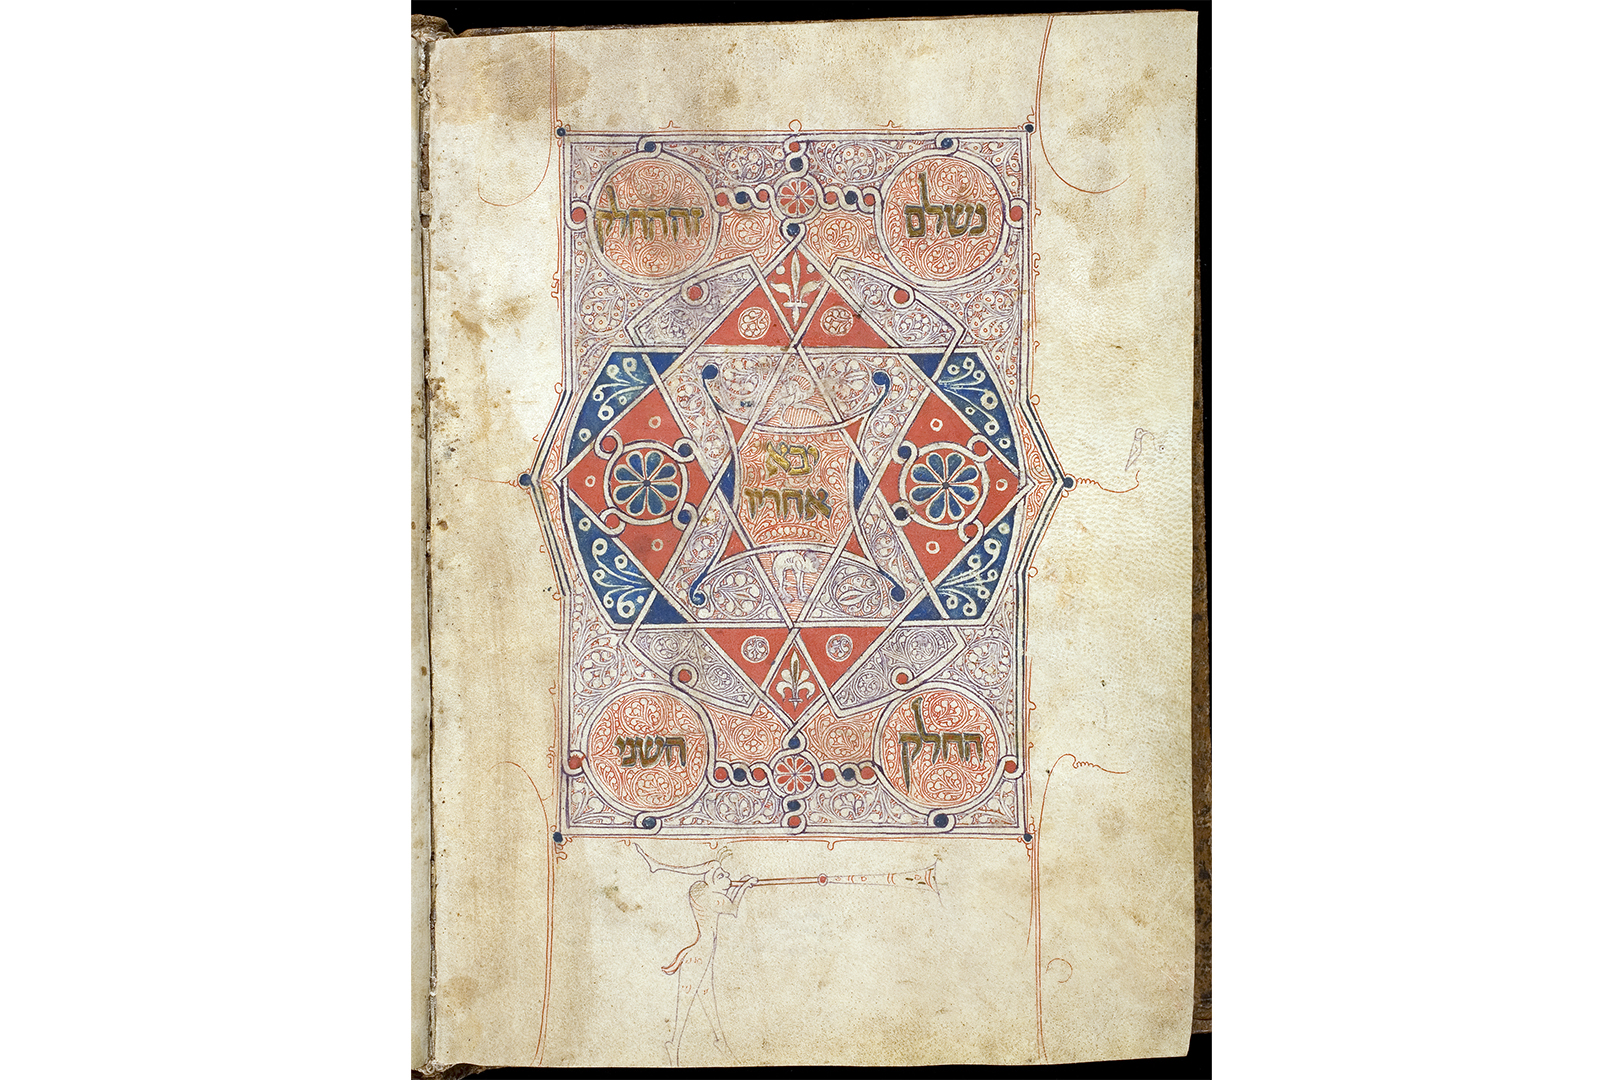 נשלם זההחלק
יבא
אחריו
החלק השני